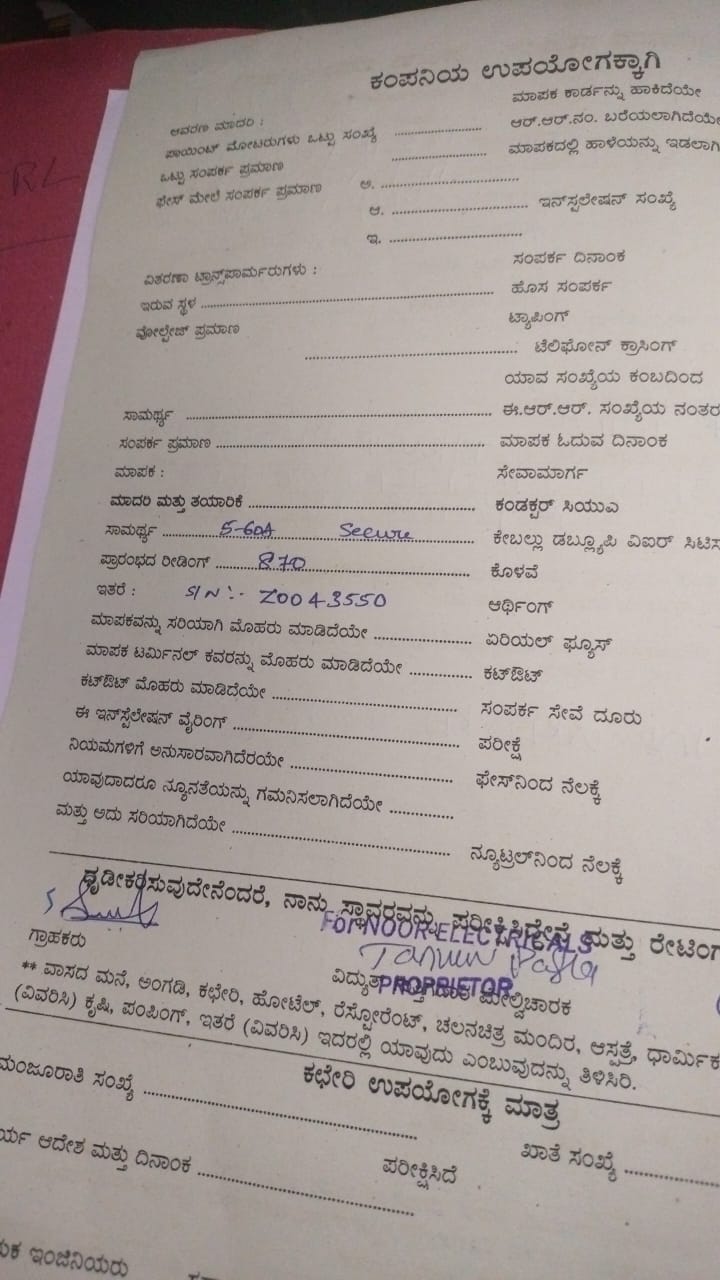 RL
ಕಂಪನಿಯ ಉಪಯೋಗಕ್ಕಾಗಿ
ಆವರಣ ಮಾದರಿ : ಮಾಪಕ ಕಾರ್ಡನ್ನು ಹಾಕಿದೆಯೇ
ಪಾಯಿಂಟ್ ಮೋಟರುಗಳು ಒಟ್ಟು ಸಂಖ್ಯೆ .................... ಆರ್.ಆರ್.ನಂ. ಬರೆಯಲಾಗಿದೆಯೇ
ಒಟ್ಟು ಸಂಪರ್ಕ ಪ್ರಮಾಣ .................... ಮಾಪಕದಲ್ಲಿ ಹಾಳೆಯನ್ನು ಇಡಲಾಗಿ
ಫೇಸ್ ಮೇಲೆ ಸಂಪರ್ಕ ಪ್ರಮಾಣ ಅ. ....................
ಆ. .................... ಇನ್‌ಸ್ಟಲೇಷನ್ ಸಂಖ್ಯೆ
ಇ. ....................
ವಿತರಣಾ ಟ್ರಾನ್ಸ್‌ಫಾರ್ಮರುಗಳು : ಸಂಪರ್ಕ ದಿನಾಂಕ
ಇರುವ ಸ್ಥಳ .................... ಹೊಸ ಸಂಪರ್ಕ
ವೋಲ್ಟೇಜ್ ಪ್ರಮಾಣ ಟ್ಯಾಪಿಂಗ್
.................... ಟೆಲಿಫೋನ್ ಕ್ರಾಸಿಂಗ್
ಯಾವ ಸಂಖ್ಯೆಯ ಕಂಬದಿಂದ
ಸಾಮರ್ಥ್ಯ .................... ಈ.ಆರ್.ಆರ್. ಸಂಖ್ಯೆಯ ನಂತರ
ಸಂಪರ್ಕ ಪ್ರಮಾಣ .................... ಮಾಪಕ ಓದುವ ದಿನಾಂಕ
ಮಾಪಕ : ಸೇವಾಮಾರ್ಗ
ಮಾದರಿ ಮತ್ತು ತಯಾರಿಕೆ .................... ಕಂಡಕ್ಟರ್ ಸಿಯುಎ
ಸಾಮರ್ಥ್ಯ 5-60A Secure ಕೇಬಲ್ಲು ಡಬ್ಲ್ಯೂಪಿ ವಿಐರ್ ಸಿಟಿಸ
ಪ್ರಾರಂಭದ ರೀಡಿಂಗ್ 870 ಕೊಳವೆ
ಇತರೆ : S/N :- Z0043550 ಆರ್ಥಿಂಗ್
ಮಾಪಕವನ್ನು ಸರಿಯಾಗಿ ಮೊಹರು ಮಾಡಿದೆಯೇ .................... ಏರಿಯಲ್ ಫ್ಯೂಸ್
ಮಾಪಕ ಟರ್ಮಿನಲ್ ಕವರನ್ನು ಮೊಹರು ಮಾಡಿದೆಯೇ .................... ಕಟ್‌ಔಟ್
ಕಟ್‌ಔಟ್ ಮೊಹರು ಮಾಡಿದೆಯೇ .................... ಸಂಪರ್ಕ ಸೇವೆ ದೂರು
ಈ ಇನ್‌ಸ್ಟೆಲೇಷನ್ ವೈರಿಂಗ್ .................... ಪರೀಕ್ಷೆ
ನಿಯಮಗಳಿಗೆ ಅನುಸಾರವಾಗಿದೆರಯೇ .................... ಫೇಸ್‌ನಿಂದ ನೆಲಕ್ಕೆ
ಯಾವುದಾದರೂ ನ್ಯೂನತೆಯನ್ನು ಗಮನಿಸಲಾಗಿದೆಯೇ ....................
ಮತ್ತು ಅದು ಸರಿಯಾಗಿದೆಯೇ .................... ನ್ಯೂಟ್ರಲ್‌ನಿಂದ ನೆಲಕ್ಕೆ
ಧೃಡೀಕರಿಸುವುದೇನೆಂದರೆ, ನಾನು ಸ್ಥಾವರವನ್ನು ಪರೀಕ್ಷಿಸಿದ್ದೇನೆ ಮತ್ತು ರೇಟಿಂಗ
For NOOR ELECTRICALS
ಗ್ರಾಹಕರು ವಿದ್ಯುತ್ ಮೇಲ್ವಿಚಾರಕ
PROPRIETOR
** ವಾಸದ ಮನೆ, ಅಂಗಡಿ, ಕಛೇರಿ, ಹೋಟೆಲ್, ರೆಸ್ಟೋರೆಂಟ್, ಚಲನಚಿತ್ರ ಮಂದಿರ, ಆಸ್ಪತ್ರೆ, ಧಾರ್ಮಿಕ
(ವಿವರಿಸಿ) ಕೃಷಿ, ಪಂಪಿಂಗ್, ಇತರೆ (ವಿವರಿಸಿ) ಇದರಲ್ಲಿ ಯಾವುದು ಎಂಬುವುದನ್ನು ತಿಳಿಸಿರಿ.
ಕಛೇರಿ ಉಪಯೋಗಕ್ಕೆ ಮಾತ್ರ
ಮಂಜೂರಾತಿ ಸಂಖ್ಯೆ .................... ಖಾತೆ ಸಂಖ್ಯೆ ....................
ರ್ಯ ಆದೇಶ ಮತ್ತು ದಿನಾಂಕ .................... ಪರೀಕ್ಷಿಸಿದೆ
ಯಕ ಇಂಜಿನಿಯರು